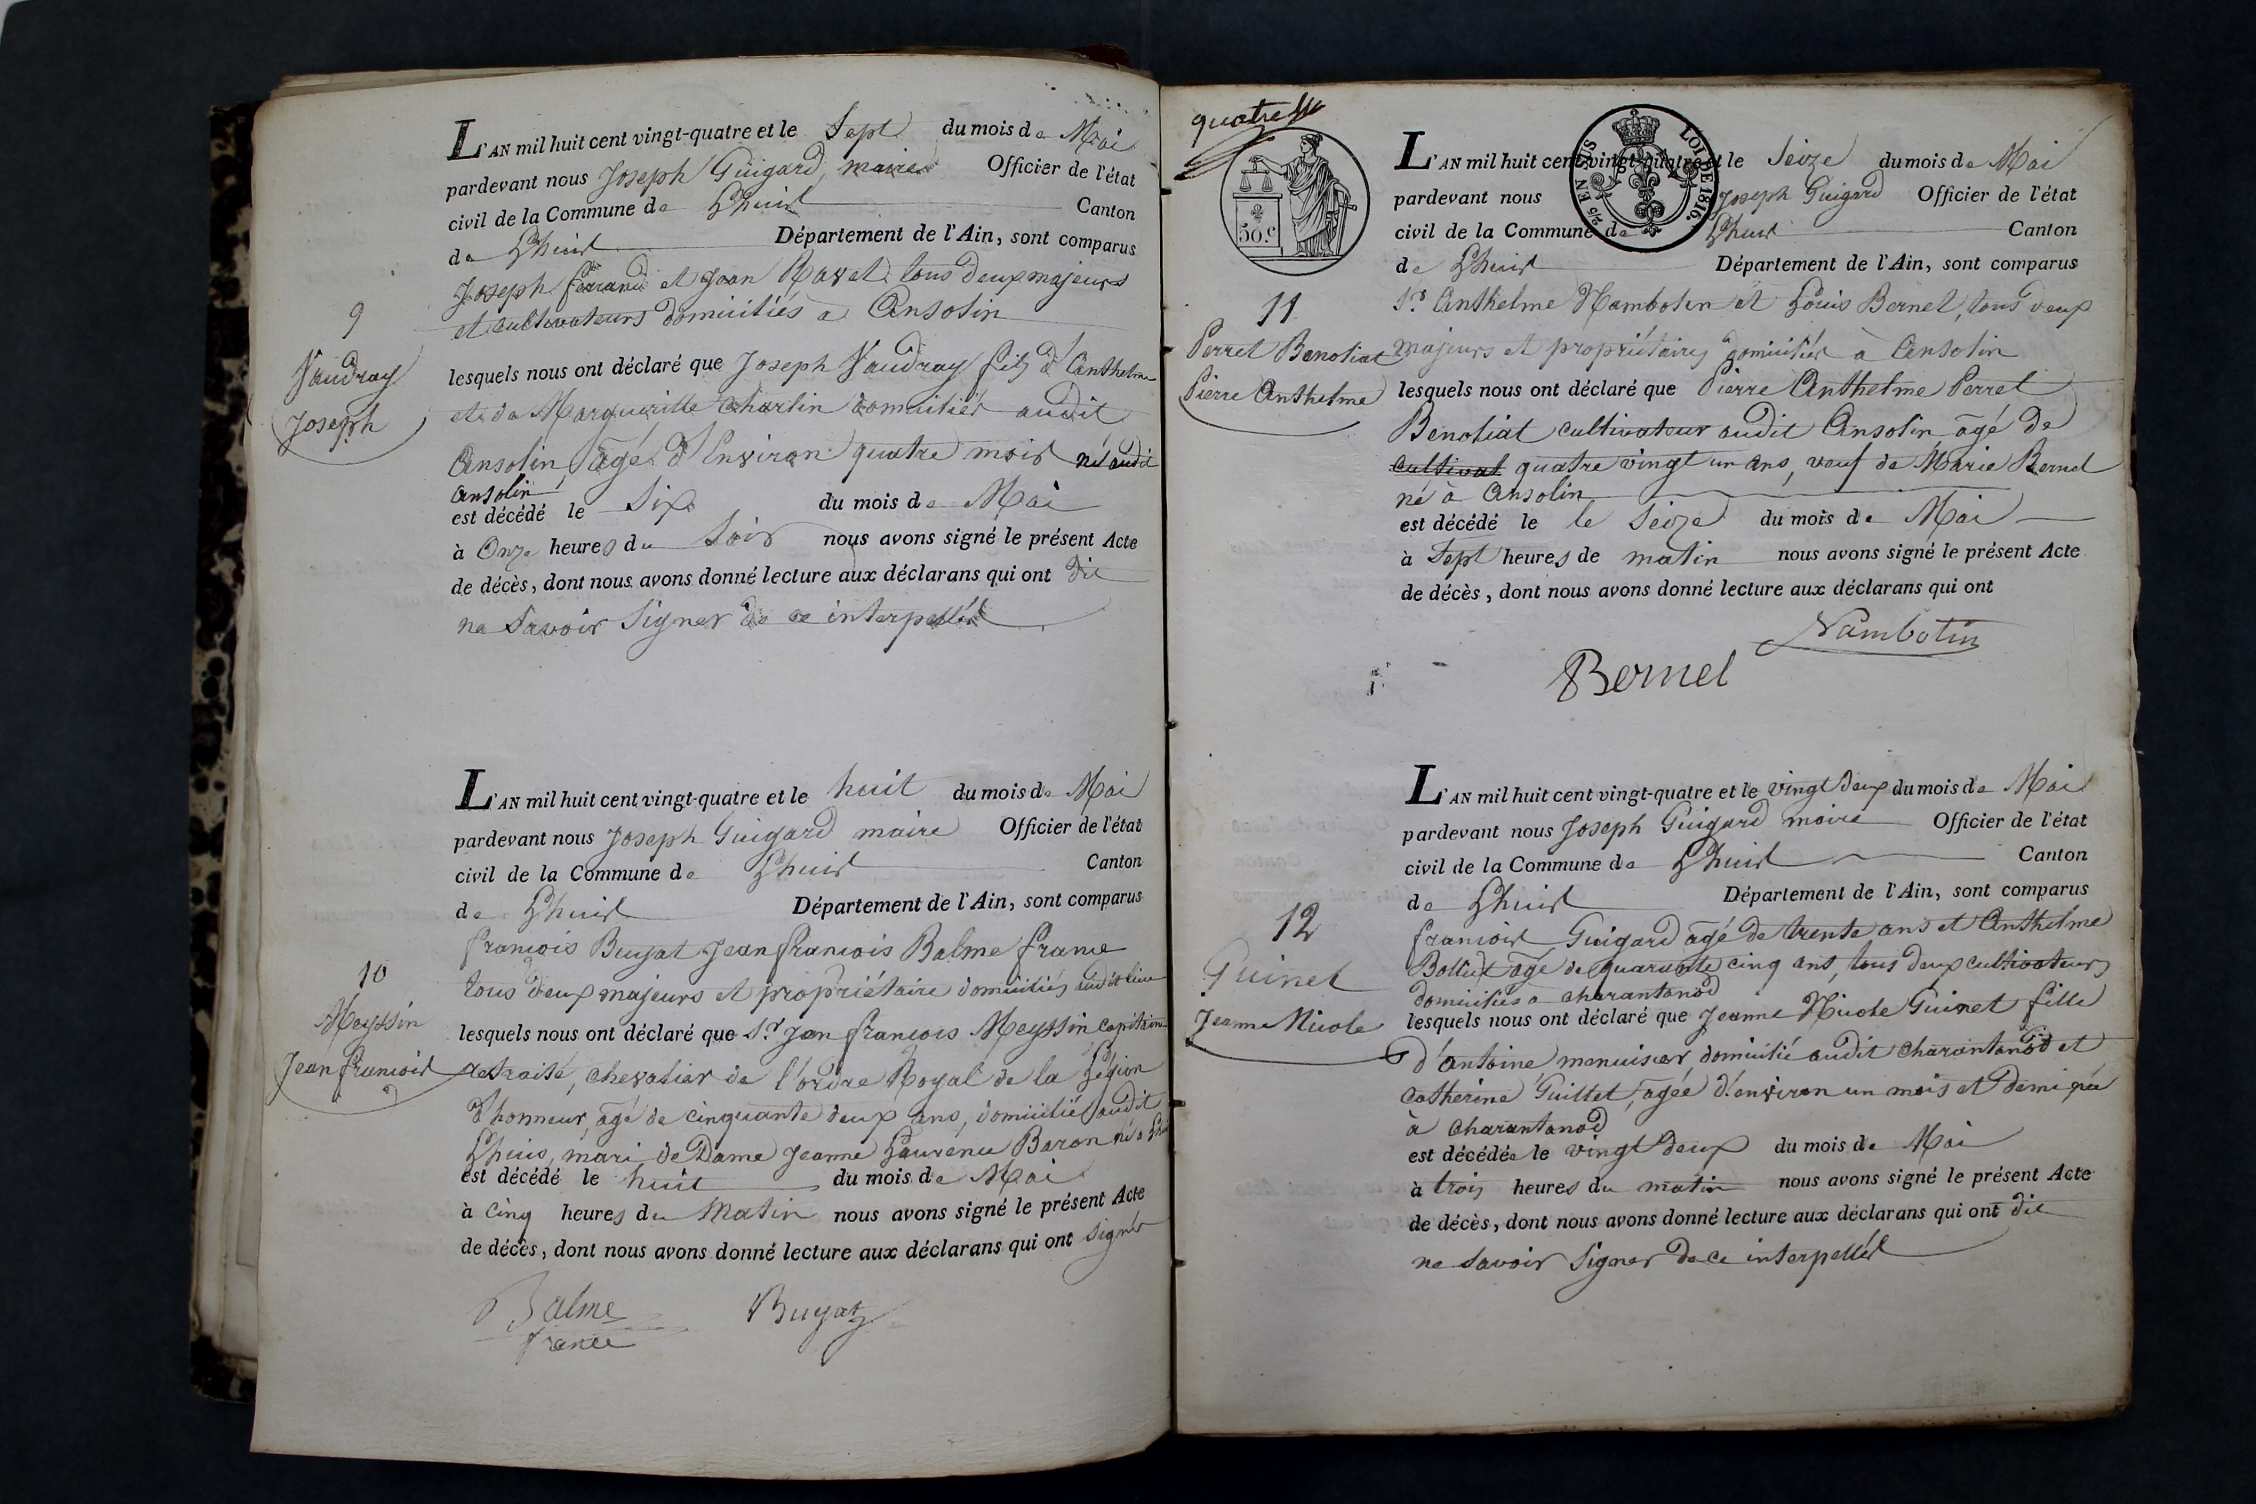 L'AN mil huit cent vingt-quatre et le Sept du mois de Mai
pardevant nous Joseph Guigard, maire Officier de l'état
civil de la Commune de Lhuis Canton
de Lhuis Département de l'Ain, sont comparus
Joseph ferrand et Jean Ravet tous deux majeurs
et cultivateurs domiciliés à Ansolin
9
Vaudray
Joseph
lesquels nous ont déclaré que Joseph Vaudray fils d'Anthelme
et de Margueritte Charlin domiciliés audit
Ansolin, âgé d'Environ quatre mois né audit
Ansolin,
est décédé le Six du mois de Mai
à Onze heures du Soir nous avons signé le présent Acte
de décès, dont nous avons donné lecture aux déclarans qui ont dit
ne Savoir Signer de ce interpellés
L'AN mil huit cent vingt-quatre et le huit du mois de Mai
pardevant nous Joseph Guigard maire Officier de l'état
civil de la Commune de Lhuis Canton
de Lhuis Département de l'Ain, sont comparus
francois Buyat Jean francois Balme france
tous deux majeurs et propriétaire domiciliés audit lieu
10
Meyssin
Jean francois
lesquels nous ont déclaré que Sr. Jean francois Meyssin Capitaine
retraité, chevalier de l'ordre Royal de la Légion
d'honneur, âgé de cinquante deux ans, domicilié audit
Lhuis, mari de Dame Jeanne Laurence Baron né à Lhuis
est décédé le huit du mois de Mai
à Cinq heures du Matin nous avons signé le présent Acte
de décès, dont nous avons donné lecture aux déclarans qui ont signés
Balme Buyat
france
quatre
50 c.
25/c EN SUS
LOI DE 1816.
L'AN mil huit cent vingt-quatre et le Seize du mois de Mai
pardevant nous Joseph Guigard Officier de l'état
civil de la Commune de Lhuis Canton
de Lhuis Département de l'Ain, sont comparus
Srs Anthelme Nambotin et Louis Bernel, tous deux
majeurs et propriétaires domiciliés à Ansolin
11
Perret Benotiat
Pierre Anthelme
lesquels nous ont déclaré que Pierre Anthelme Perret
Benotiat cultivateur audit Ansolin âgé de
cultivat quatre vingt un ans, veuf de Marie Bernel
né à Ansolin
est décédé le le Seize du mois de Mai
à Sept heures de matin nous avons signé le présent Acte
de décès, dont nous avons donné lecture aux déclarans qui ont
Nambotin
Bernel
L'AN mil huit cent vingt-quatre et le vingt deux du mois de Mai
pardevant nous Joseph Guigard maire Officier de l'état
civil de la Commune de Lhuis Canton
de Lhuis Département de l'Ain, sont comparus
francois Guigard âgé de trente ans et Anthelme
âgé de quarante cinq ans, tous deux cultivateurs
domiciliés à charantonod
12
Guinet
Jeanne Nicole
lesquels nous ont déclaré que Jeanne Nicole Guinet fille
d'antoine menuisier domicilié audit charantonod et
Catherine Guillet, âgée d'environ un mois et demi née
à charantonod
est décédée le vingt deux du mois de Mai
à trois heures du matin nous avons signé le présent Acte
de décès, dont nous avons donné lecture aux déclarans qui ont dit
ne Savoir Signer de ce interpellés